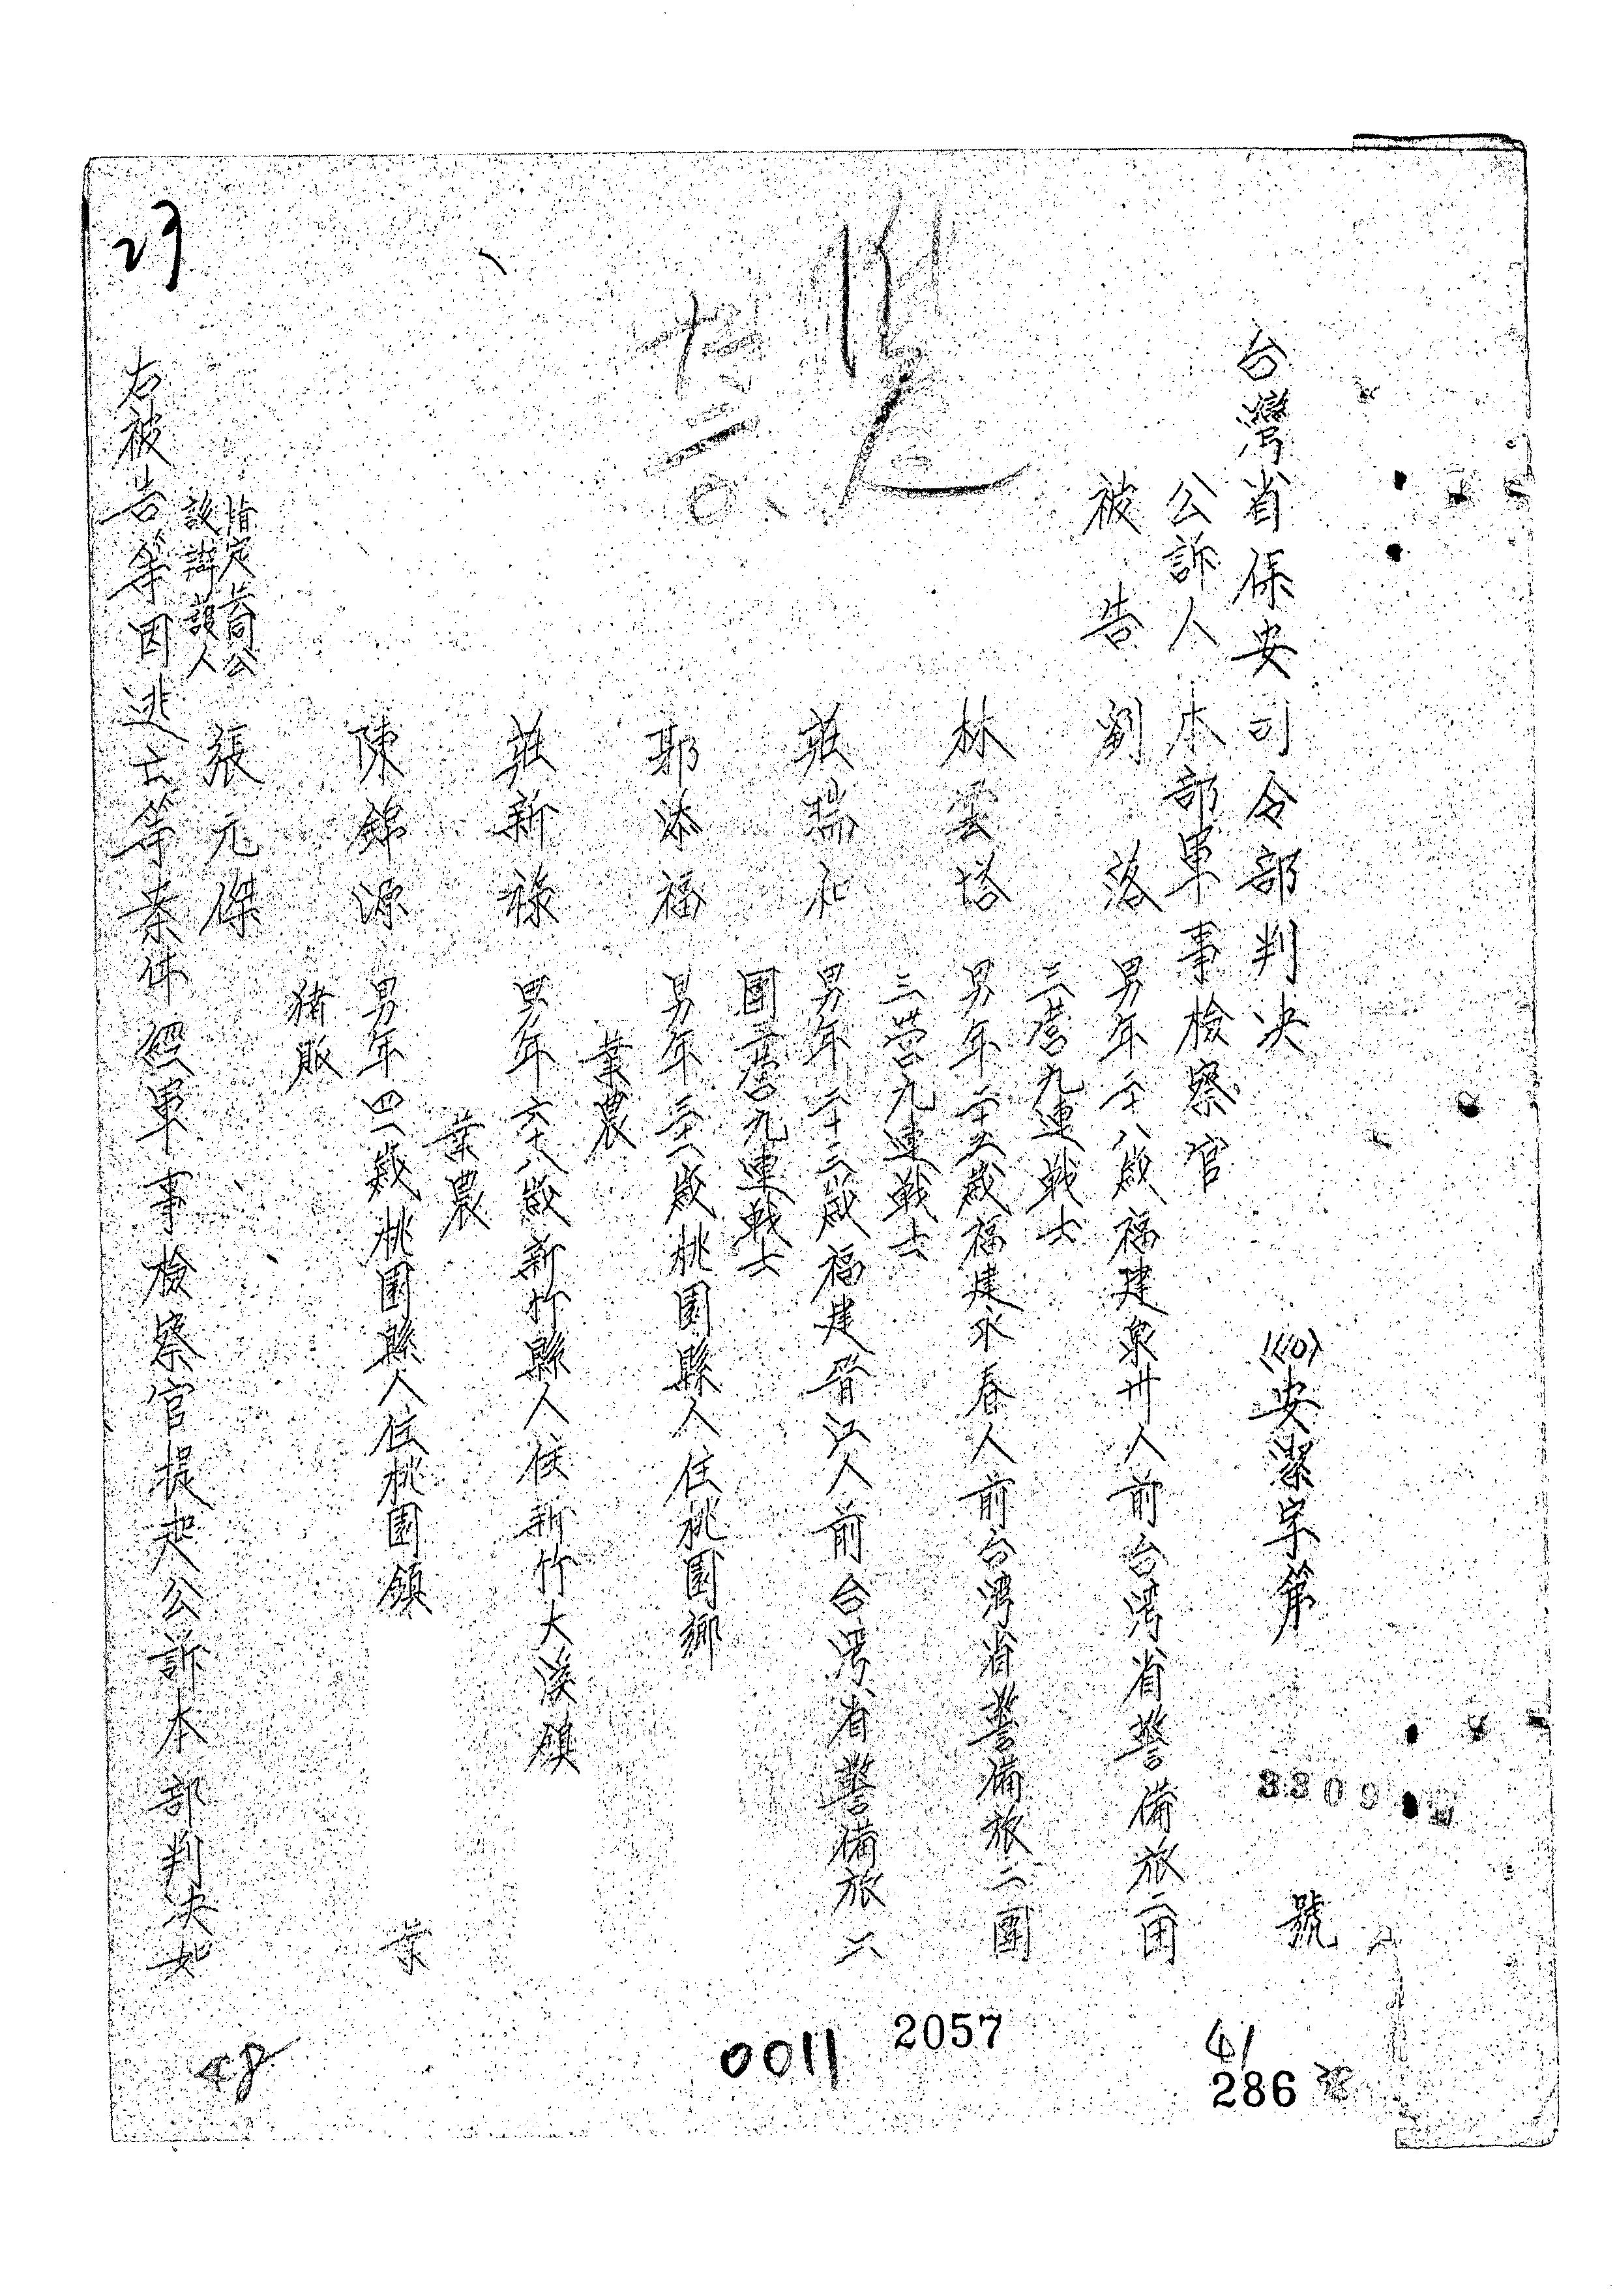 台灣省保安司令部判决
(40)安潔字第3309號
公訴人 本部軍事檢察官
被告 劉落 男年二十八歲福建泉州人前台湾省警備旅二团
三营九連戰士
林雲塔 男年二十五歲福建永春人前台湾省警備旅二團
三营九連戰士
莊瑞和 男年二十三歲福建晉江人前台湾省警備旅二
團三營九連戰士
郭添福 男年三十一歲桃園縣人住桃園鄉
業農
莊新祿 男年六十八歲新竹縣人住新竹大溪鎮
業農
陳錦源 男年四一歲桃園縣人住桃園鎮 業
猪販
指定共同公
設辯護人 張元傑
右被告等因逃亡等案件經軍事檢察官提起公訴本部判决如
23
48
0011
2057
41
286